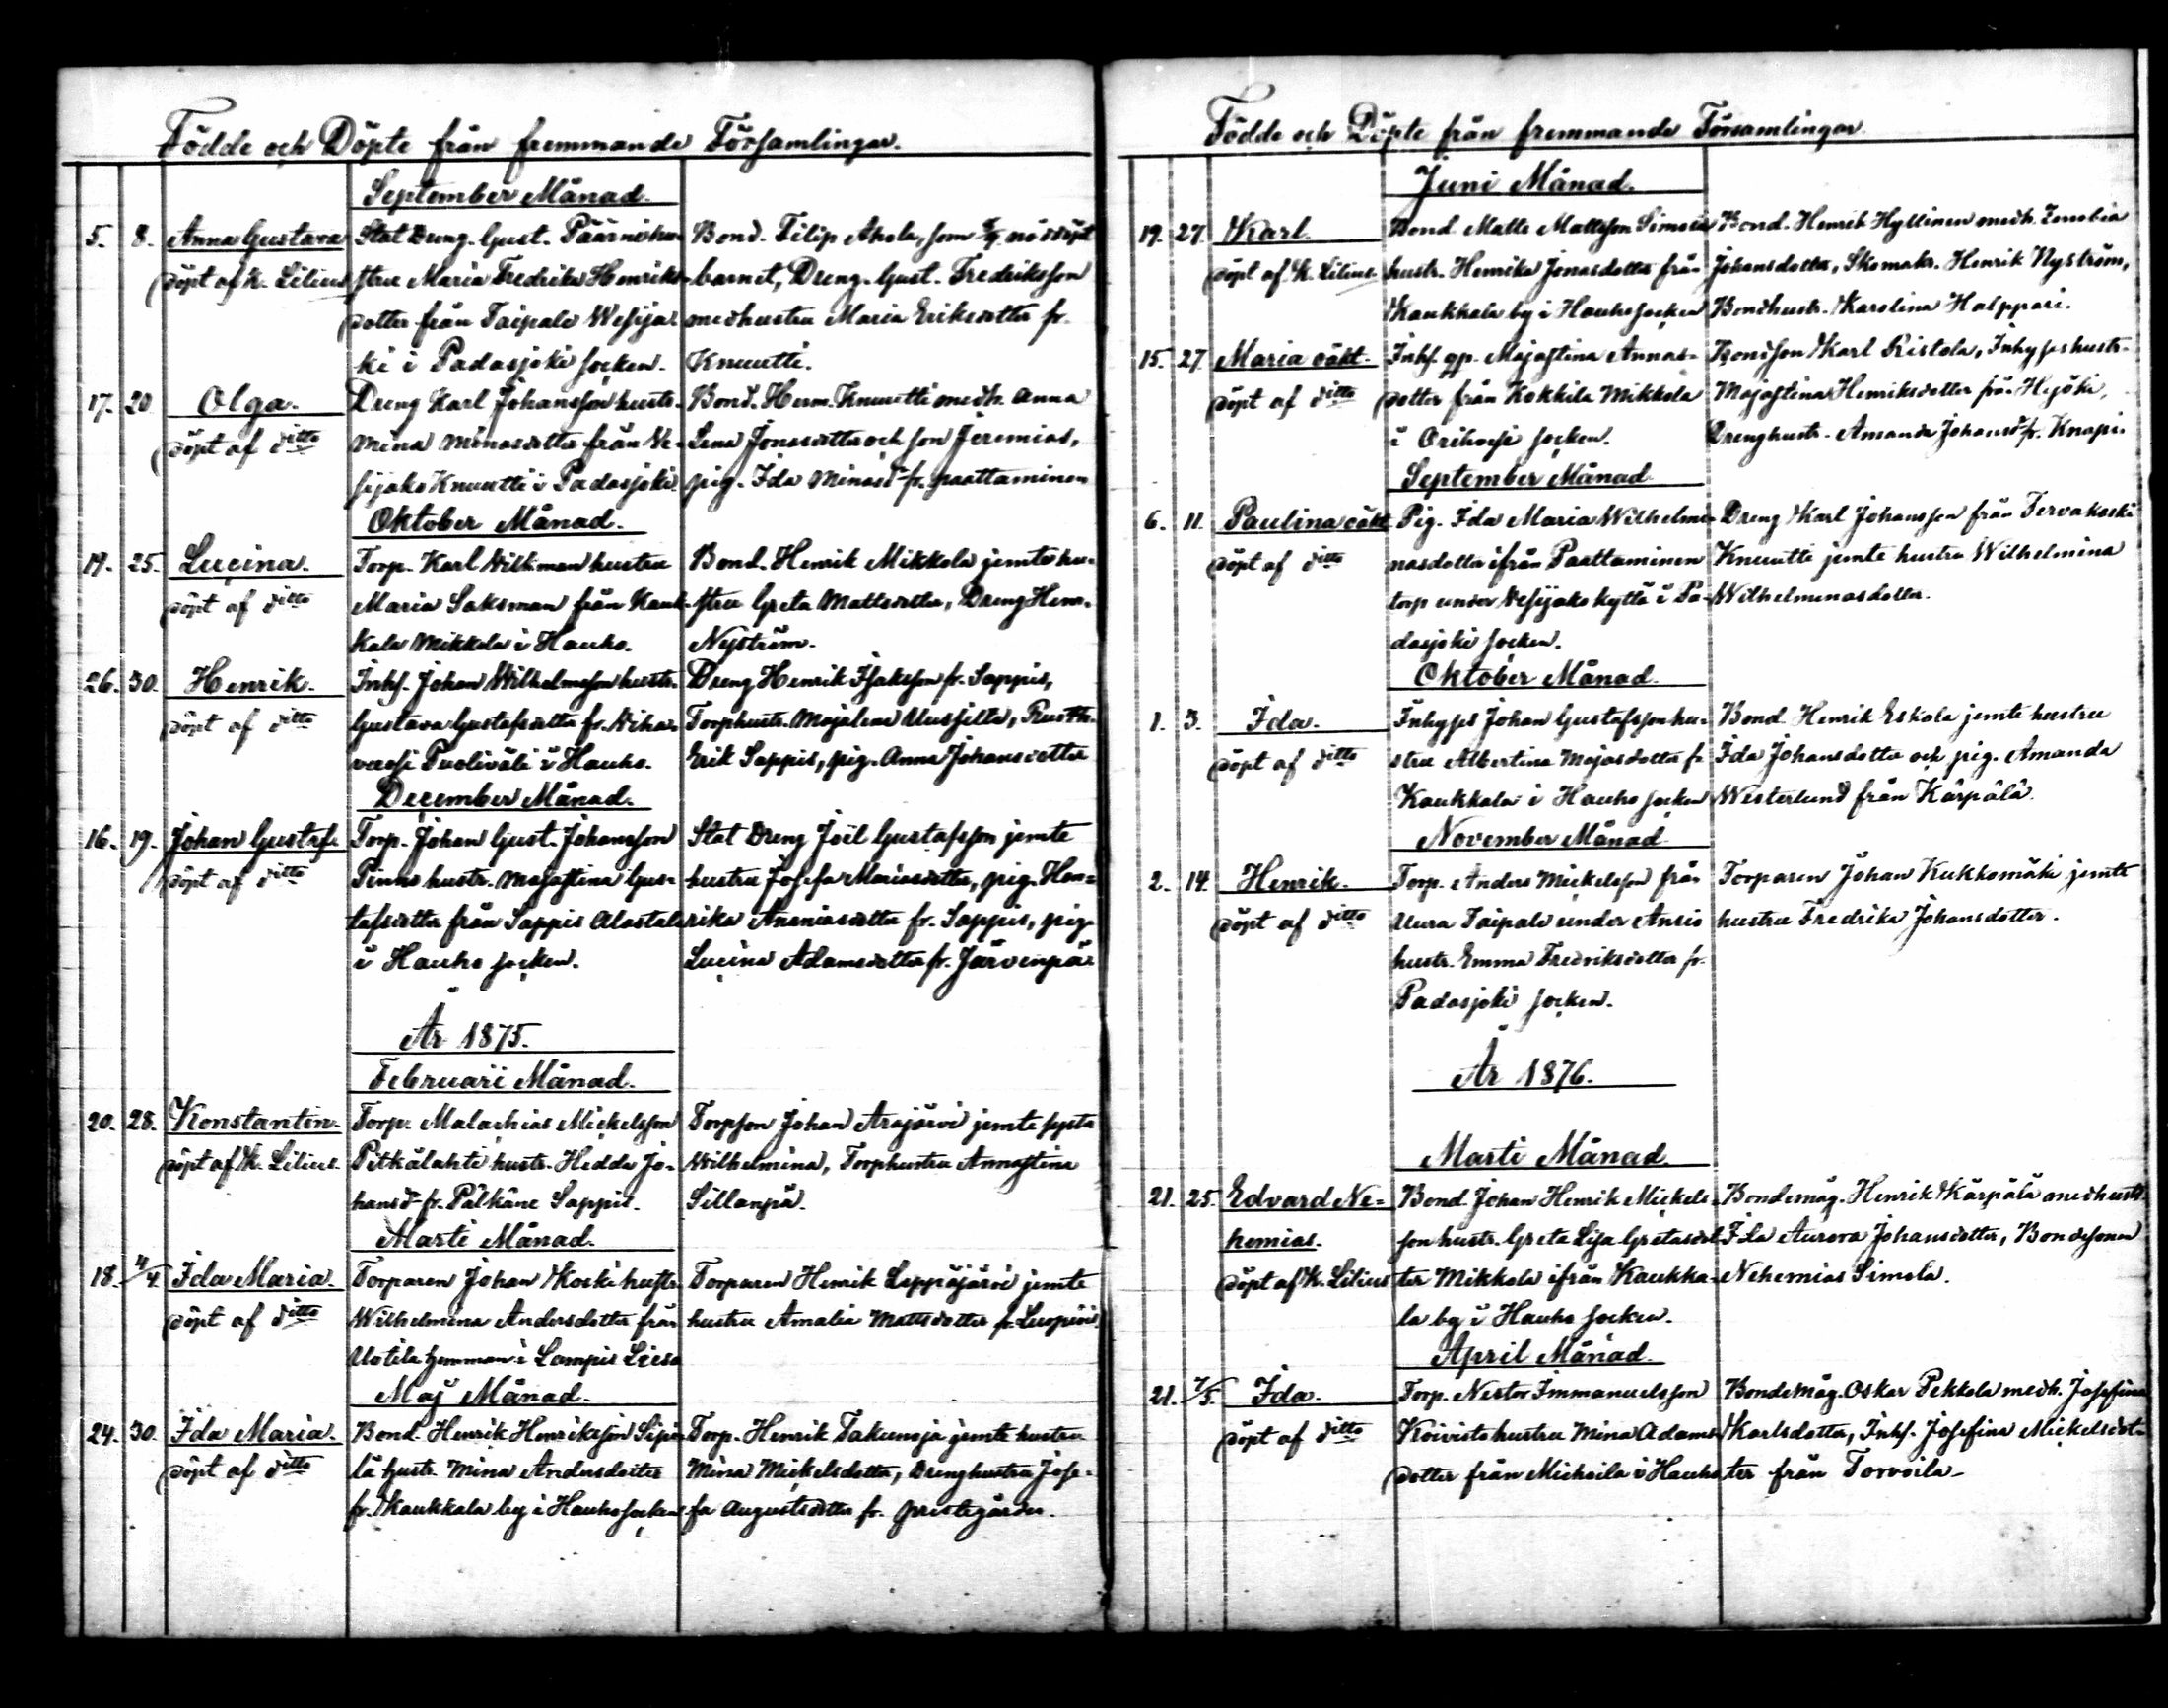 Födde och Döpte från fremmande Församlingar.
September Månad.
5. 8. Anna Gustava Stat Dreng. Gust. Pääni hu- Bond. Filip Ahola, som nöddöpt
döpt af K. Lilius stru Maria Fredrika Henriks- barnet, Dreng. Gust. Fredriksson
dotter från Taipale Wesija- medhustru Maria Eriksdotter fr.
ki i Padasjoki socken. Knuutti.
17. 20 Olga. Dreng Karl Johansson hustr. Bond. Herm. Knuutti medh. Anna
döpt af ditto Mina Minasdotter från We- Lena Jonasdotter och son Jeremias,
sijako Knuutti i Padasjoki pig. Ida Minasdr fr. paattaminen
Oktober Månad.
19. 25. Lucina. Torp. Karl Wilkman hustru Bond. Henrik Mikkola jemte hu-
döpt af ditto Maria Saksman från Kauk- stru Greta Mattsdotter, Dreng Henr.
kala Mikkola i Hauho. Nyström.
26. 30. Henrik. Inhs. Johan Wilhelmsson hustr. Dreng Henrik Isaksson fr. Sappis,
döpt af ditto Gustava Gustafsdotter fr. Wiha- Torphustr. Majalena Uusitlta, Rusth.
vuosi Puoliväli i Hauho. Erik Sappis, pig. Anna Johansdotter
December Månad.
16. 19. Johan Gustaf. Torp. Johan Gust. Johansson Stat Dreng Joel Gustafsson jemte
döpt af ditto hustr. Majastina Gus- hustru Josefa Mariasdotter, pig. Hen-
tafsdotter från Sappis Alastalo rika Ananiasdotter fr. Sappis, pig.
i Hauho socken. Lucina Adamsdotter fr. Järvenpä
År 1875.
Februarii Månad.
20. 28. Konstantin. Torp. Malachias Mickelsson Torpson Johan Arajärvi jemte syster
döpt af K. Lilius. Pitkälahti hustr. Hedda Jo- Wilhelmina, Torphustru Annastina
hansdr fr. Pälkäne Sappis. Sillanpä.
Marti Månad.
18. 4/4 Ida Maria. Torparen Johan Koski hustr. Torparen Henrik Leppäjärvi jemte
döpt af ditto Wilhelmina Andersdotter från hustru Amalia Mattsdotter fr.
Uotila hemman i Lampis
Maj Månad.
24. 30. Ida Maria. Bond. Henrik Henriksson Sipi- Torp. Henrik Takunsja jemte hustru
döpt af ditto lä hustr. Mina Andersdotter Mina Mickelsdotter, Drenghustru Jose-
fr. Kaukkala by i Hauho socken fa Augustsdotter fr. prestegården.
Födde och Döpte från fremmande Församlingar
Juni Månad.
19. 27. Karl. Bond Matte Mattsson Simola Bond. Henrik Hyllinen medh. Zenobia
döpt af K. Lilius. hustr. Henrika Jonasdotter från Johansdotter, Skomakr. Henrik Nyström,
Kaukkala by i Hauho socken Bondhustr. Karolina Halppari.
15. 27. Maria oäkt. Inhs. qp. Majastina Annas- Bondson Karl Ristola, Inhyseshustr.
döpt af ditto dotter från Kokkila Mikkola Majastina Henriksdotter från Hyöki,
i Orihvesi socken. Drenghustr. Amanda Johansdr fr. Knapi.
September Månad.
6. 11. Paulina oäkt. Pig. Ida Maria Wilhelmi- Dreng Karl Johansson från Tervakoski
döpt af ditto nasdotter ifrån Paattaminen Knuutti jemte hustru Wilhelmina
torp under Wesijako kyttä i Pa- Wilhelminasdotter.
dasjoki socken.
Oktober Månad.
1. 3. Ida. Inhyses Johan Gustafsson hu- Bond Henrik Eskola jemte hustru
döpt af ditto stru Albertina Majasdotter fr. Ida Johansdotter och pig. Amanda
Kaukkala i Hauho socken Westerlund från Kärpälä.
November Månad
2. 14. Henrik. Torp. Anders Mickelsson från Torparen Johan Kukkomäki jemte
döpt af ditto Uura Taipale under Ansio hustru Fredrika Johansdotter.
hustr. Emma Fredriksdotter fr.
Padasjoki socken.
År 1876.
Marti Månad.
21. 25. Edvard Ne- Bond. Johan Henrik Mickels- Bondemåg. Henrik Kärpälä medhustr.
hemias. son hustr. Greta Lisa Gretasdot- Ida Aurora Johansdotter, Bondesonen
döpt af K. Lilius ter Mikkola ifrån Kaukka- Nehemias Simola.
la by i Hauho socken.
April Månad.
21. 7/5. Ida. Torp. Nestor Immanuelsson Bondemåg. Oskar Pekkola medh. Josefina
döpt af ditto Koivisto hustru Mina Adams- Karlsdotter, Inhs. Josefina Mickelsdot-
dotter från Michoila i Hauho ter från Torvoila